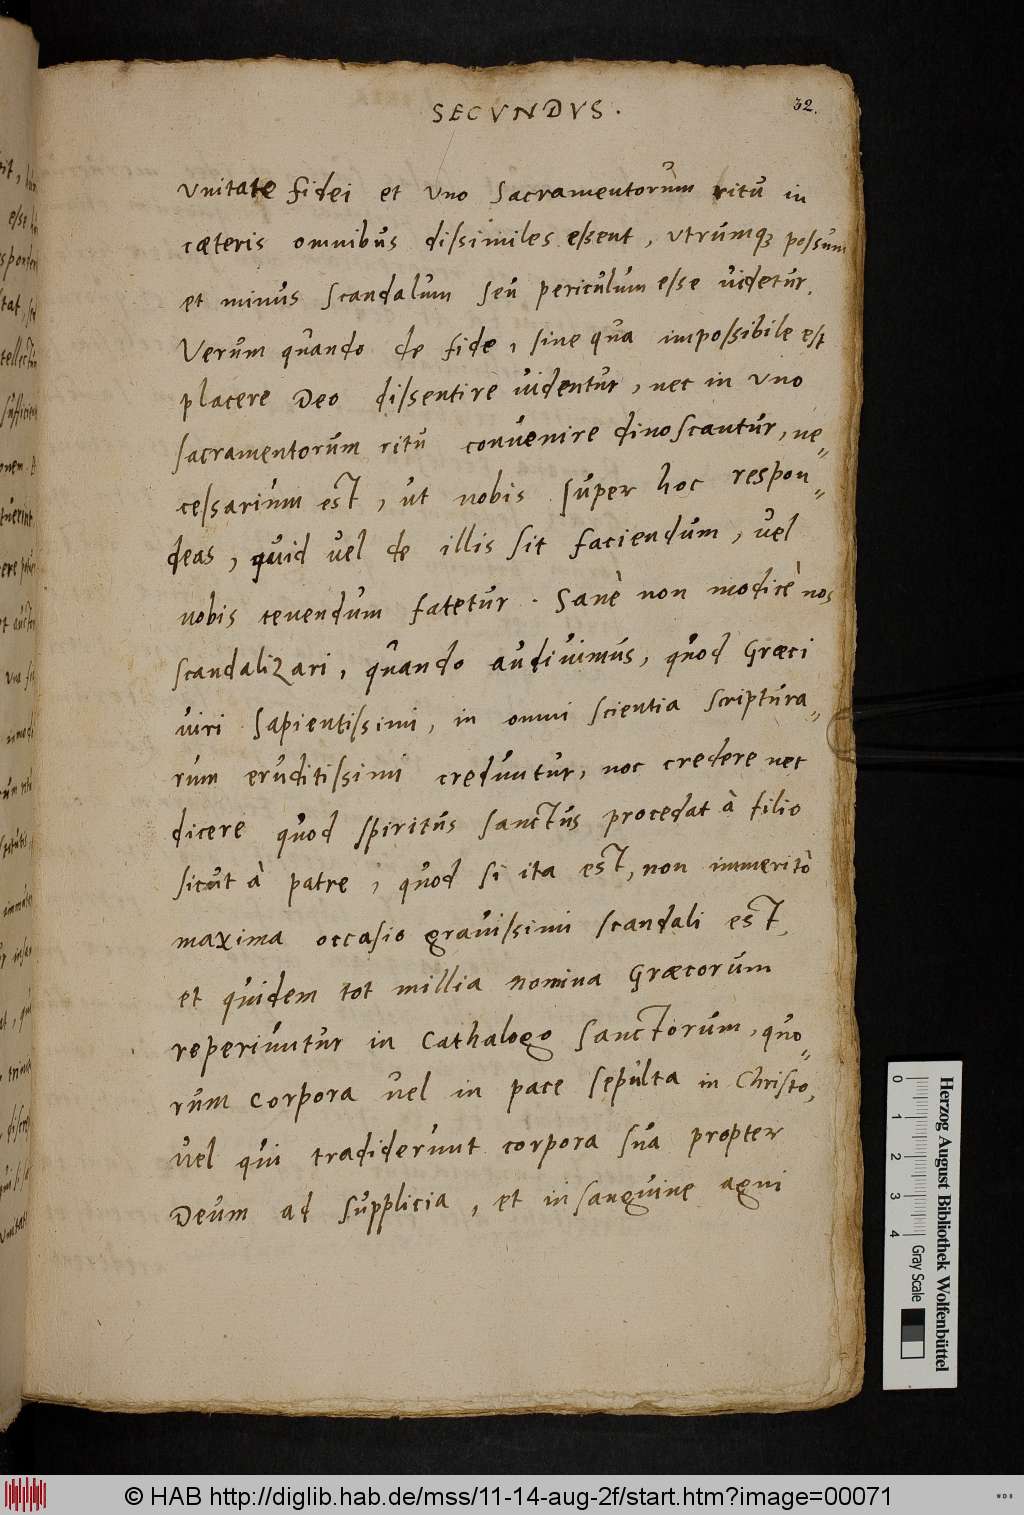 SECVNDVS.
32.
vnitate fidei et vno Sacramentorum ritu in
cæteris omnibus dissimiles essent, vtrumqꝫ possum
et minus scandalum seu periculum esse uidetur.
Verum quando de fide, sine qua impossibile est
placere Deo dissentire uidentur, nec in vno
sacramentorum ritu conuenire dinoscantur, ne„
cessarium est, ut nobis super hoc respon„
deas, quid vel de illis sit faciendum, vel
nobis tenendum fatetur. Sanè non modicè nos
scandalizari, quando audiuimus, quod Græci
uiri sapientissimi, in omni scientia scriptura„
rum eruditissimi creduntur, noc credere nec
dicere quod spiritus sanctus procedat à filio
sicut à patre, quod si ita est, non immeritò
maxima occasio grauissimi scandali est,
et quidem tot millia nomina Græcorum
reperiuntur in Cathalogo Sanctorum, quo„
rum corpora uel in pace sepulta in Christo,
vel qui tradiderunt corpora sua propter
Deum ad supplicia, et in sanguine agni
0 1 2 3 4
Gray Scale
Herzog August Bibliothek Wolfenbüttel
© HAB http://diglib.hab.de/mss/11-14-aug-2f/start.htm?image=00071